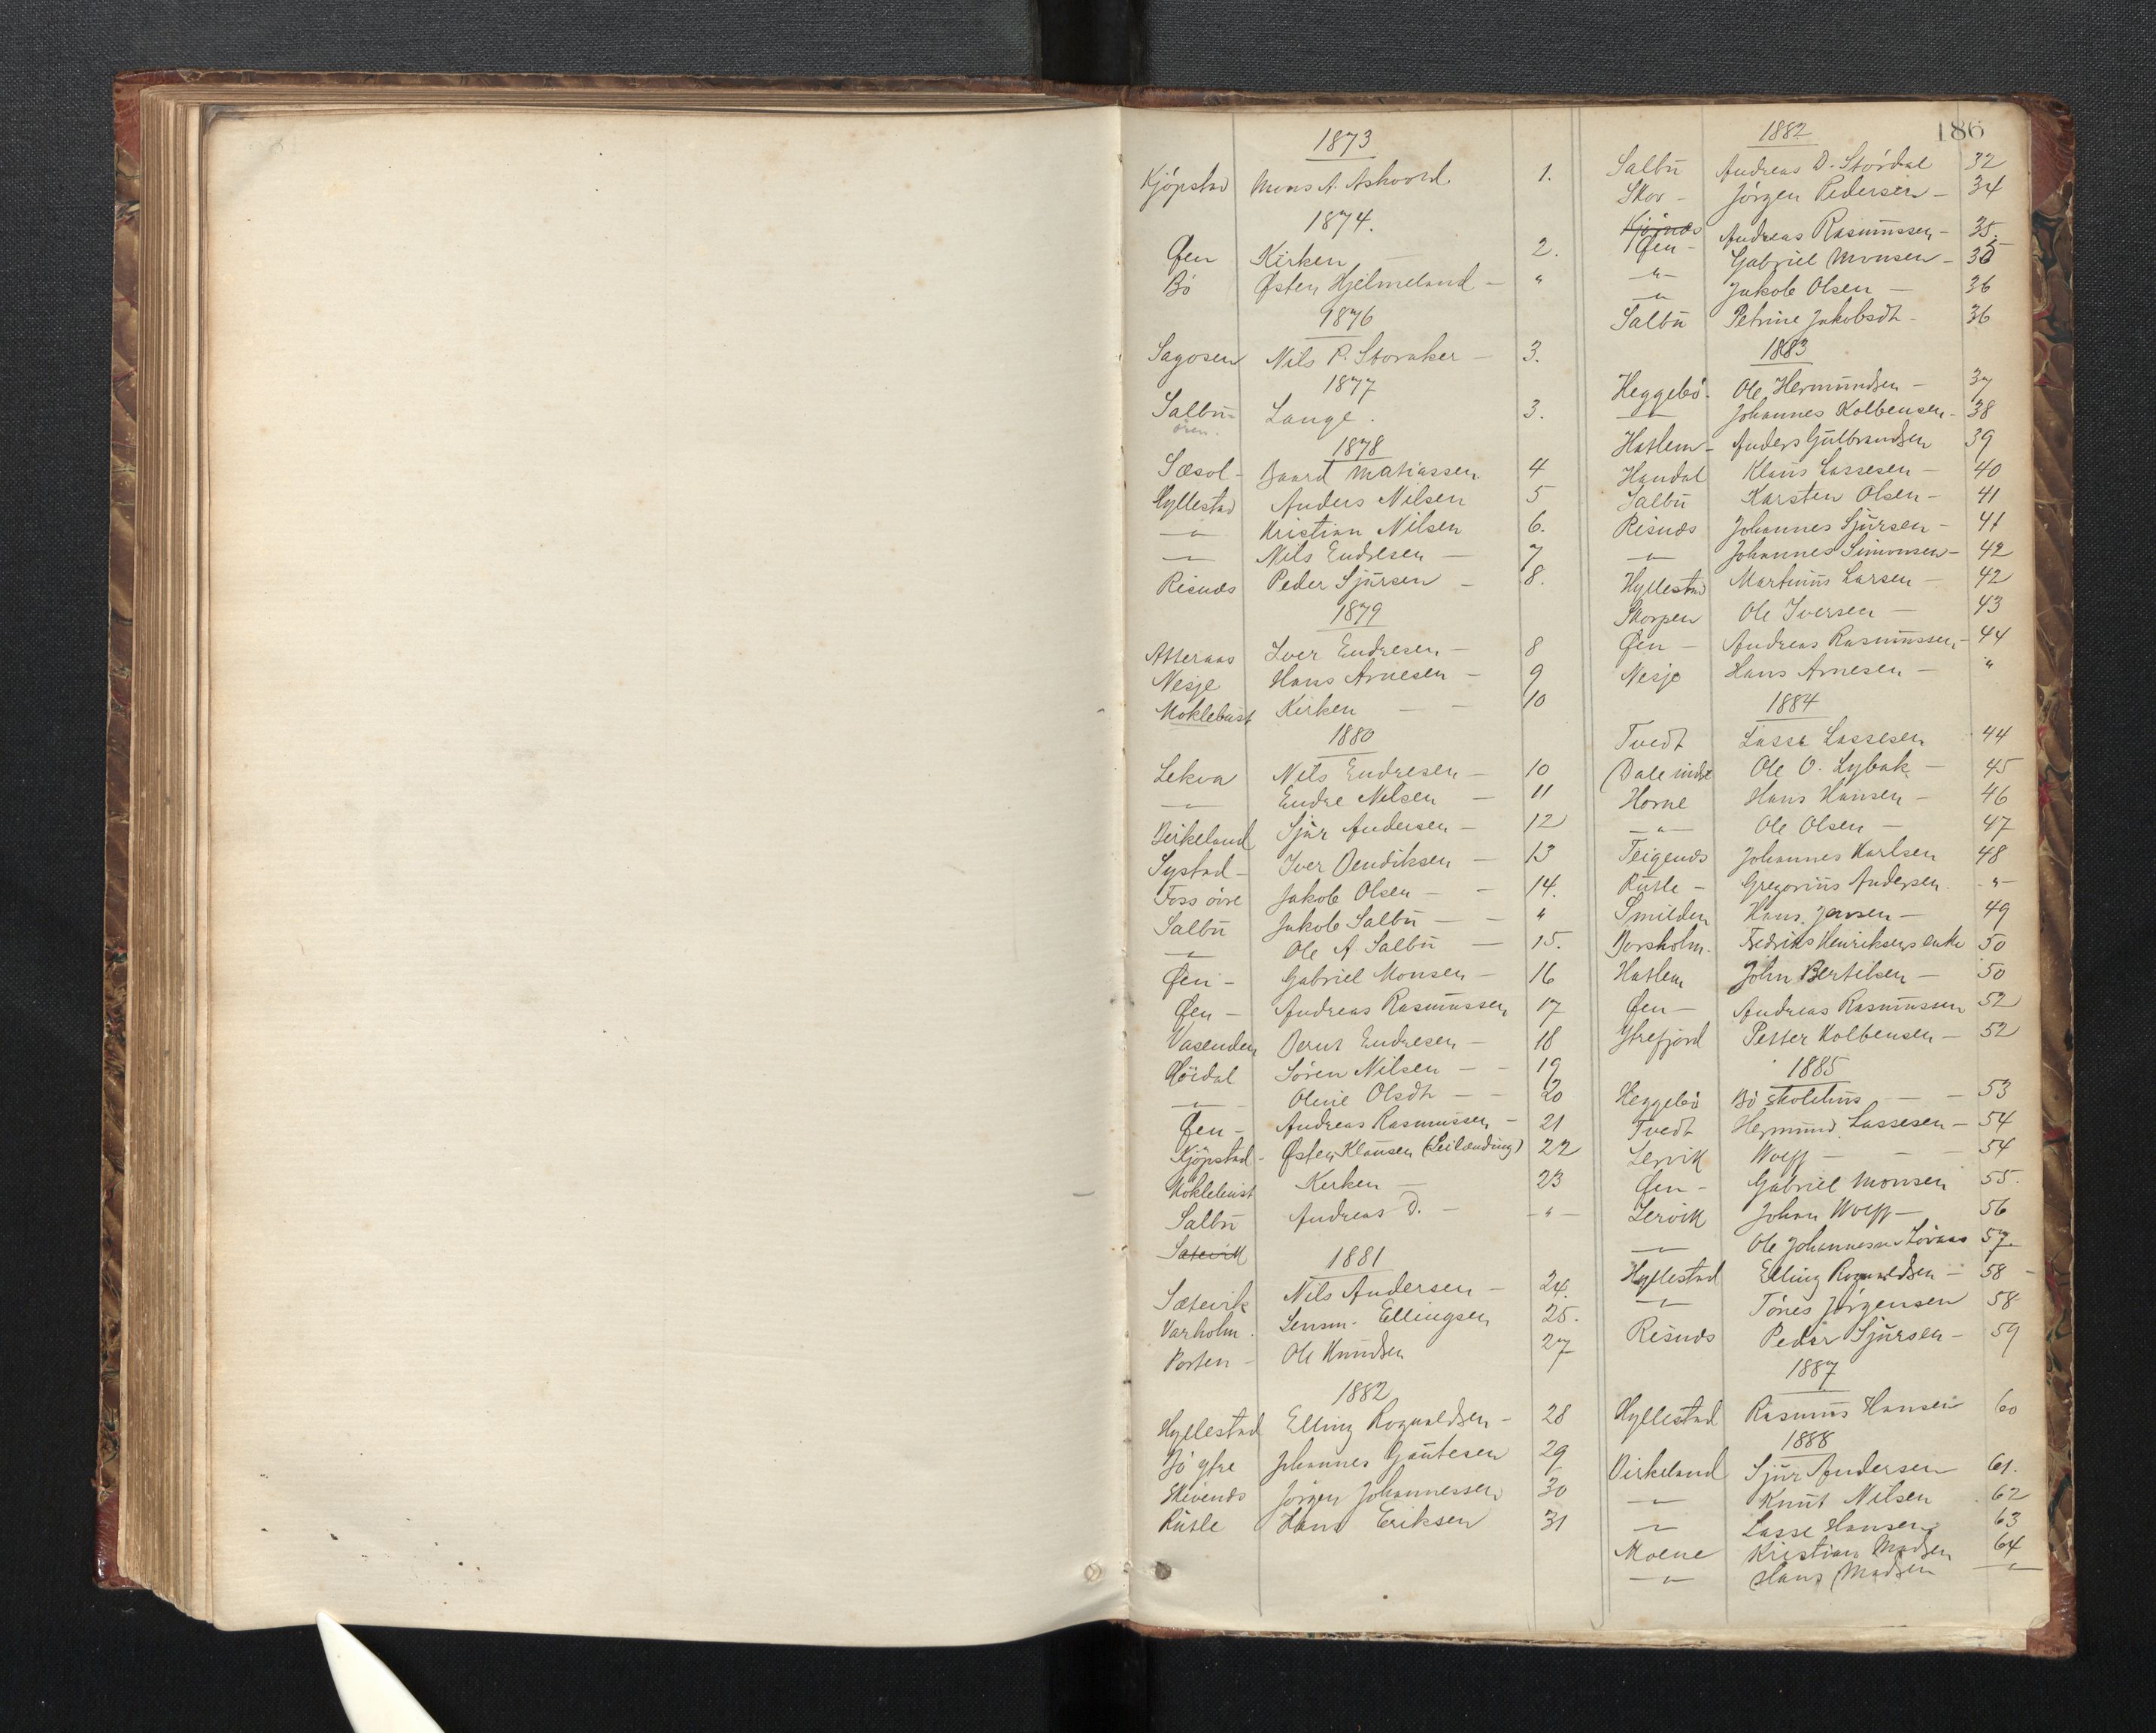 186
1873
Kjøpstad Mons A. Askvold 1.
1874.
Øen Kirken 2.
Bø Østen Hjelmeland — "
1876
Sagosen Nils P. Storaker — 3.
1877
Salbu- Lange. 3.
ören.
1878
Sæsol - Baard Matiassen 4
Hyllestad Anders Nilsen 5
—"— Kristian Nilsen 6.
—"— Nils Endresen — 7
Risnæs Peder Sjursen — 8.
1879
Atteraas Iver Endresen — 8
Nesje Hans Arnesen — 9
Moklebust Kirken — — 10
1880
Lekva Nils Endresen — 10
—"— Endre Nilsen — 11
Birkeland Sjur Andersen — 12
Systad — Iver Bendiksen — 13
Foss öire Jakob Olsen — — 14.
Salbu Jakob Salbu — — "
—"— Ole A Salbu — 15.
Øen — Gabriel Monsen — 16
Øen — Andreas Rasmussen 17
Vasenden Bernt Endresen — 18
Höidal Sören Nilsen — — 19
—"— Oline Olsdtr — — 20
Øen — Andreas Rasmussen — 21
Kjøpstad - Østen Klausen (Leilending) 22
Moklebust Kirken — 23
Salbu Andreas D. — —"—
Satevik
1881
Sætevik Nils Andersen — 24.
Varholm. Lensm. Ellingsen 25.
Porten — Ole Knudsen 27
1882
Hyllestad Elling Rognaldsen — 28
Bö ytre Johannes Gautesen 29
Skivenæs Jörgen Johannessen 30
Rutle Hans Eriksen 31
1882
Salbu Andreas D. Stordal 32
Skor — Jörgen Pedersen — 34
Kjørnæs
Øen — Andreas Rasmussen — 35.
—"— Gabriel Monsen — 35
—"— Jakob Olsen — 36
Salbu Petrine Jakobsdtr — 36
1883
Heggebö. Ole Hermundsen — 37
—"— Johannes Kolbensen — 38
Hatlem — Anders Gulbrandsen 39
Handal Klaus Lassesen — 40
Salbu Karsten Olsen — 41
Risnæs Johannes Sjursen — 41
—"— Johannes Simonsen — 42
Hyllestad Martinus Larsen — 42
Skorpen Ole Iversen — 43
Øen — Andreas Rasmussen — 44
Nesje Hans Arnesen — "
1884
Tvedt Lasse Lassesen 44
Dale indre Ole O. Lybak — 45
Horne Hans Hansen — 46
—"— Ole Olsen — 47
Teigenæs Johannes Karlsen 48
Rutle — Gregorius Andersen. —"—
Smilden Hans Jensen — 49
Borsholm. Fredriks Henriksens enke 50
Hatlem John Bertelsen — 50
Øen — Andreas Rasmussen 52
Ytrefjord Petter Kolbensen — 52
1885
Heggebö Bö skolehus — — 53
Tvedt Hermund Lassesen — 54
Lervik Wolff — — — 54
Øen — Gabriel Monsen 55.
Lervik Johan Wolff — 56
—"— Ole Johannessen Lövaas 57
Hyllestad Elling Rognaldsen — 58
—"— Tönes Jörgensen 58
Risnæs Peder Sjursen — 59
1887
Hyllestad Rasmus Hansen 60
1888
Birkeland Sjur Andersen 61.
—"— Knut Nilsen 62
—"— Lasse Hansen 63
Moene Kristian Madsen 64
—"— Hans Madsen —"—